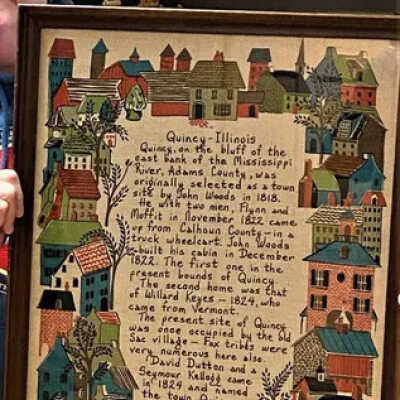 Quincy-Illinois
Quincy, on the bluff of the
east bank of the Mississippi
River, Adams County, was
originally selected as a town
site by John Woods in 1818.
He with two men, Flynn and
Moffit in November 1822 came
up from Calhoun County-in a
truck wheelcart. John Woods
built his cabin in December
1822. The first one in the
present bounds of Quincy.
The second home was that
of Willard Keyes - 1824, who
came from Vermont.
The present site of Quincy
was once occupied by the old
Sac village - Fox tribes were
very numerous here also.
David Dutton and
Seymour Kellogg came
in 1824 and named
the town